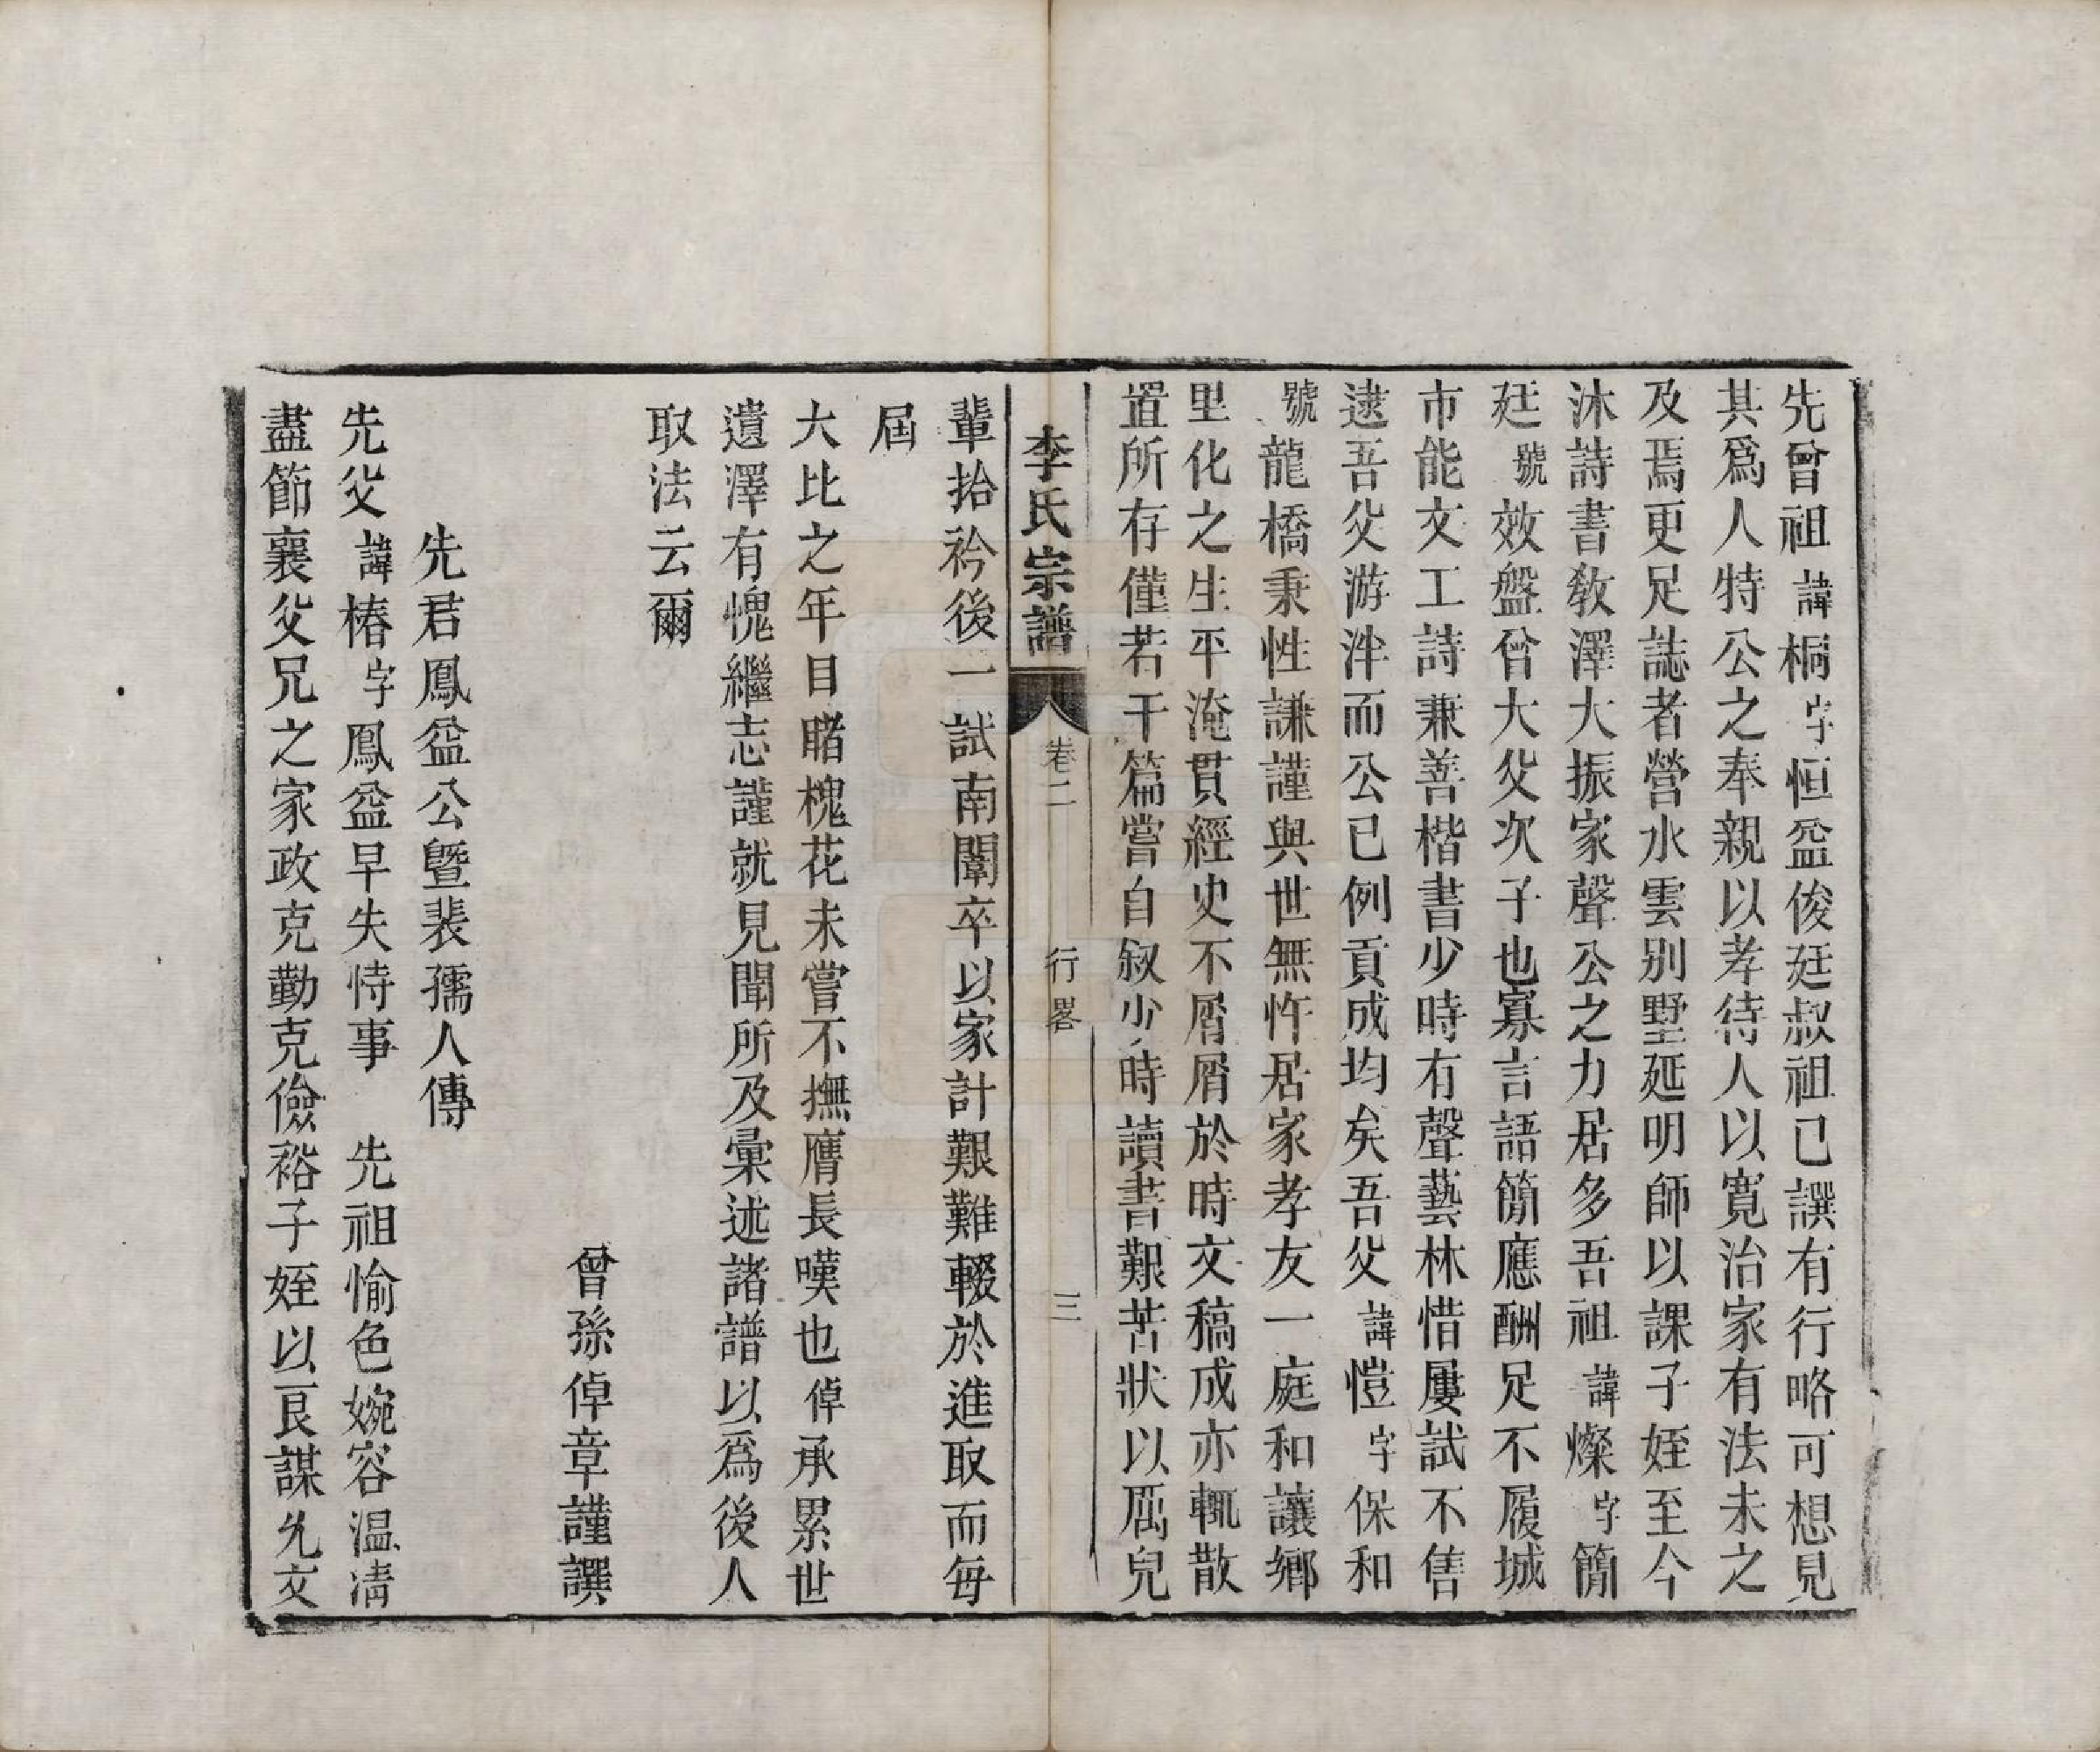 先曾祖諱桐字恒盈俊廷叔祖已譔有行略可想見
其爲人特公之奉親以孝待人以寬治家有法未之
及焉更足誌者營水雲别墅延明師以課子姪至今
沐詩書教澤大振家聲公之力居多吾祖諱燦字簡
廷號效盤曾大父次子也寡言語簡應酬足不履城
市能文工詩兼善楷書少時有聲藝林惜屢試不售
逮吾父游泮而公已例貢成均矣吾父諱愷字保和
號龍橋秉性謙謹與世無忤居家孝友一庭和讓鄉
里化之生平淹貫經史不屑屑於時文稿成亦輒散
置所存僅若干篇嘗自叙少時讀書艱苦狀以厲兒
李氏宗譜 卷二 行畧 三
輩拾衿後一試南闈卒以家計艱難輟於進取而每
屆
大比之年目睹槐花未嘗不撫膺長嘆也倬承累世
遺澤有愧繼志謹就見聞所及彙述諸譜以爲後人
取法云爾
曾孫倬章謹譔
先君鳳盆公暨裴孺人傳
先父諱椿字鳳盆早失恃事 先祖愉色婉容温凊
盡節襄父兄之家政克勤克儉裕子姪以艮謀允文